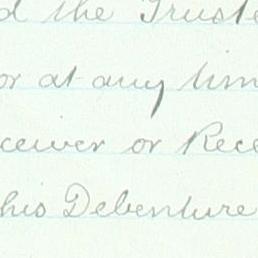 d the Truste
or at any time
ceiver or Rece
his Debenture